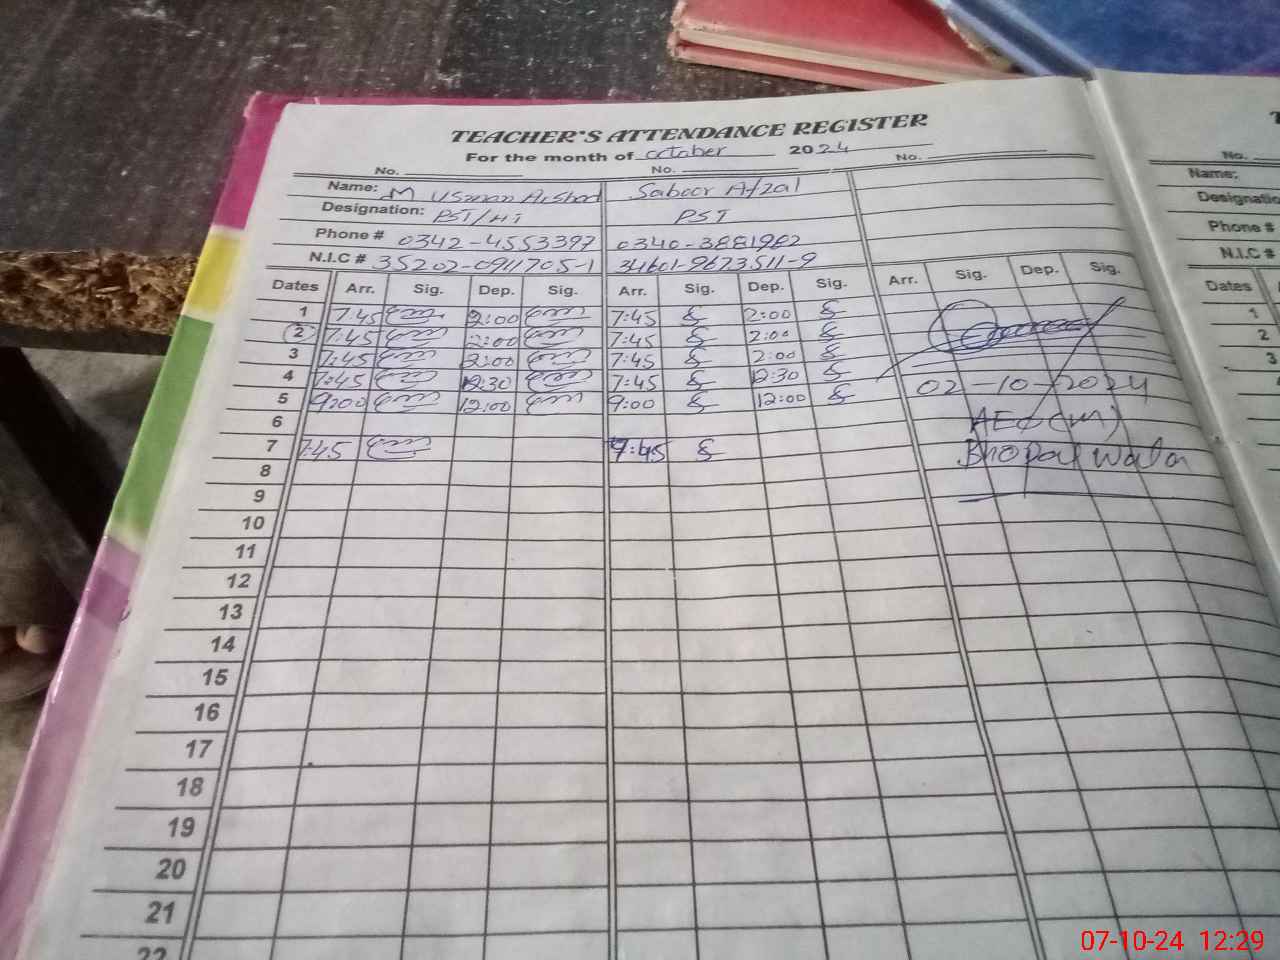 TEACHER'S ATTENDANCE REGISTER
For the month of october 2024
No. No. No.
Name: M Usman Arshad Saboor Afzal
Designation: PST/HT PST
Phone # 0342-4553397 0340-3881982
N.I.C # 35202-0911705-1 34601-9673511-9
Dates Arr. Sig. Dep. Sig. Arr. Sig. Dep. Sig. Arr. Sig. Dep. Sig.
1 7:45 2:00 7:45 2:00
2 7:45 2:00 7:45 2:00
3 7:45 2:00 7:45 2:00
4 7:45 12:30 7:45 12:30
5 9:00 12:00 9:00 12:00
02-10-2024
6
AEO(M)
7 7:45 7:45
Bhopal wala
8
9
10
11
12
13
14
15
16
17
18
19
20
21
22
No.
Name:
Designatio
Phone #
N.I.C #
Dates
1
2
3
07-10-24 12:29